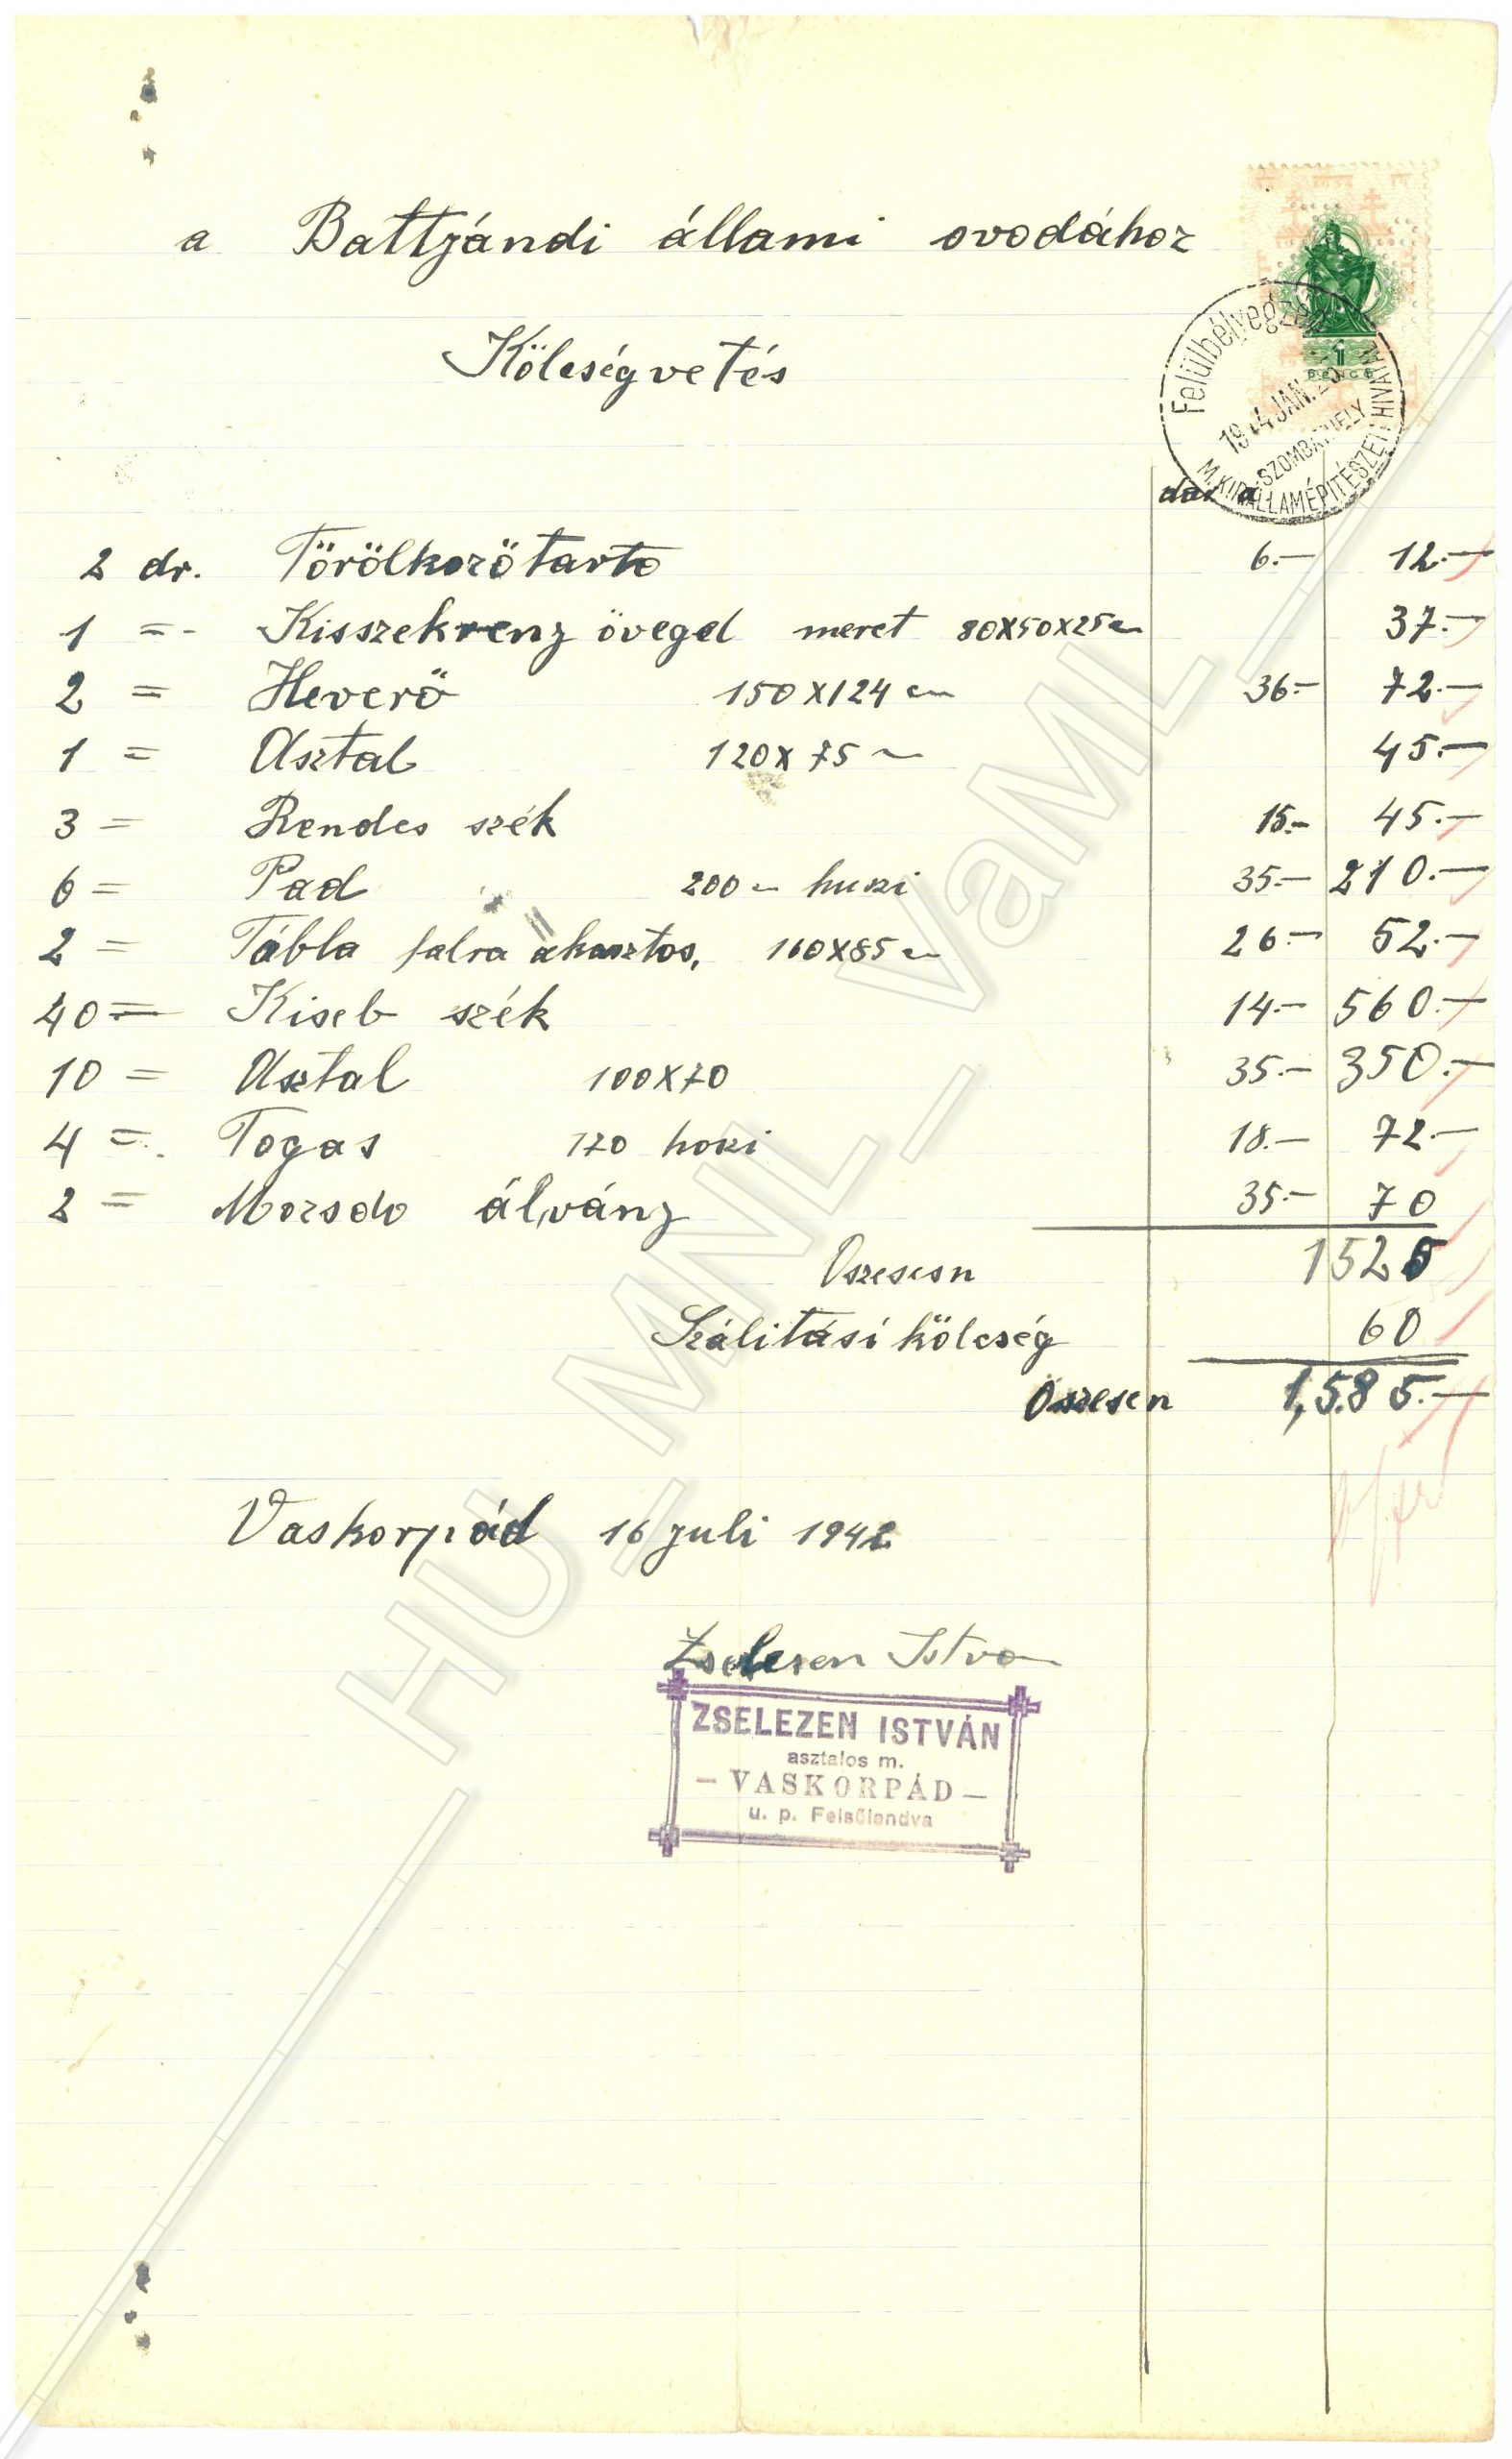 a Battjándi állami ovodához
Kölcségvetés
1
PENGŐ
Felülbélyegzés
1944 JAN.
SZOMBATHELY
M.KIR. ÁLLAMÉPITÉSZETI HIVATAL
dar a
2 dr. Törölkozőtarto 6.— 12.—
1 =- Kisszekrenz övegel meret 80X50X25 cm 37.—
2 = Heverő 150X124 cm 36.— 72.—
1 = Asztal 120X75 cm 45.—
3 = Rendes szék 15.— 45.—
6 = Pad 200 cm huzi 35.— 210.—
2 = Tábla falra akasztos, 160X85 cm 26.— 52.—
40 = Kiseb szék 14.— 560.—
10 = Asztal 100X70 35.— 350.—
4 = Togas 170 hozi 18.— 72.—
2 = Mozsdo álványz 35.— 70
Oszesesn 1525
Szálitási kölcség 60
Öszesen 1,585.—
Vaskorpád 16 juli 1942
Zselesen Istvan
ZSELEZEN ISTVÁN
asztalos m.
— VASKORPÁD —
u. p. Felsőlendva
HU_MNL_VaML_